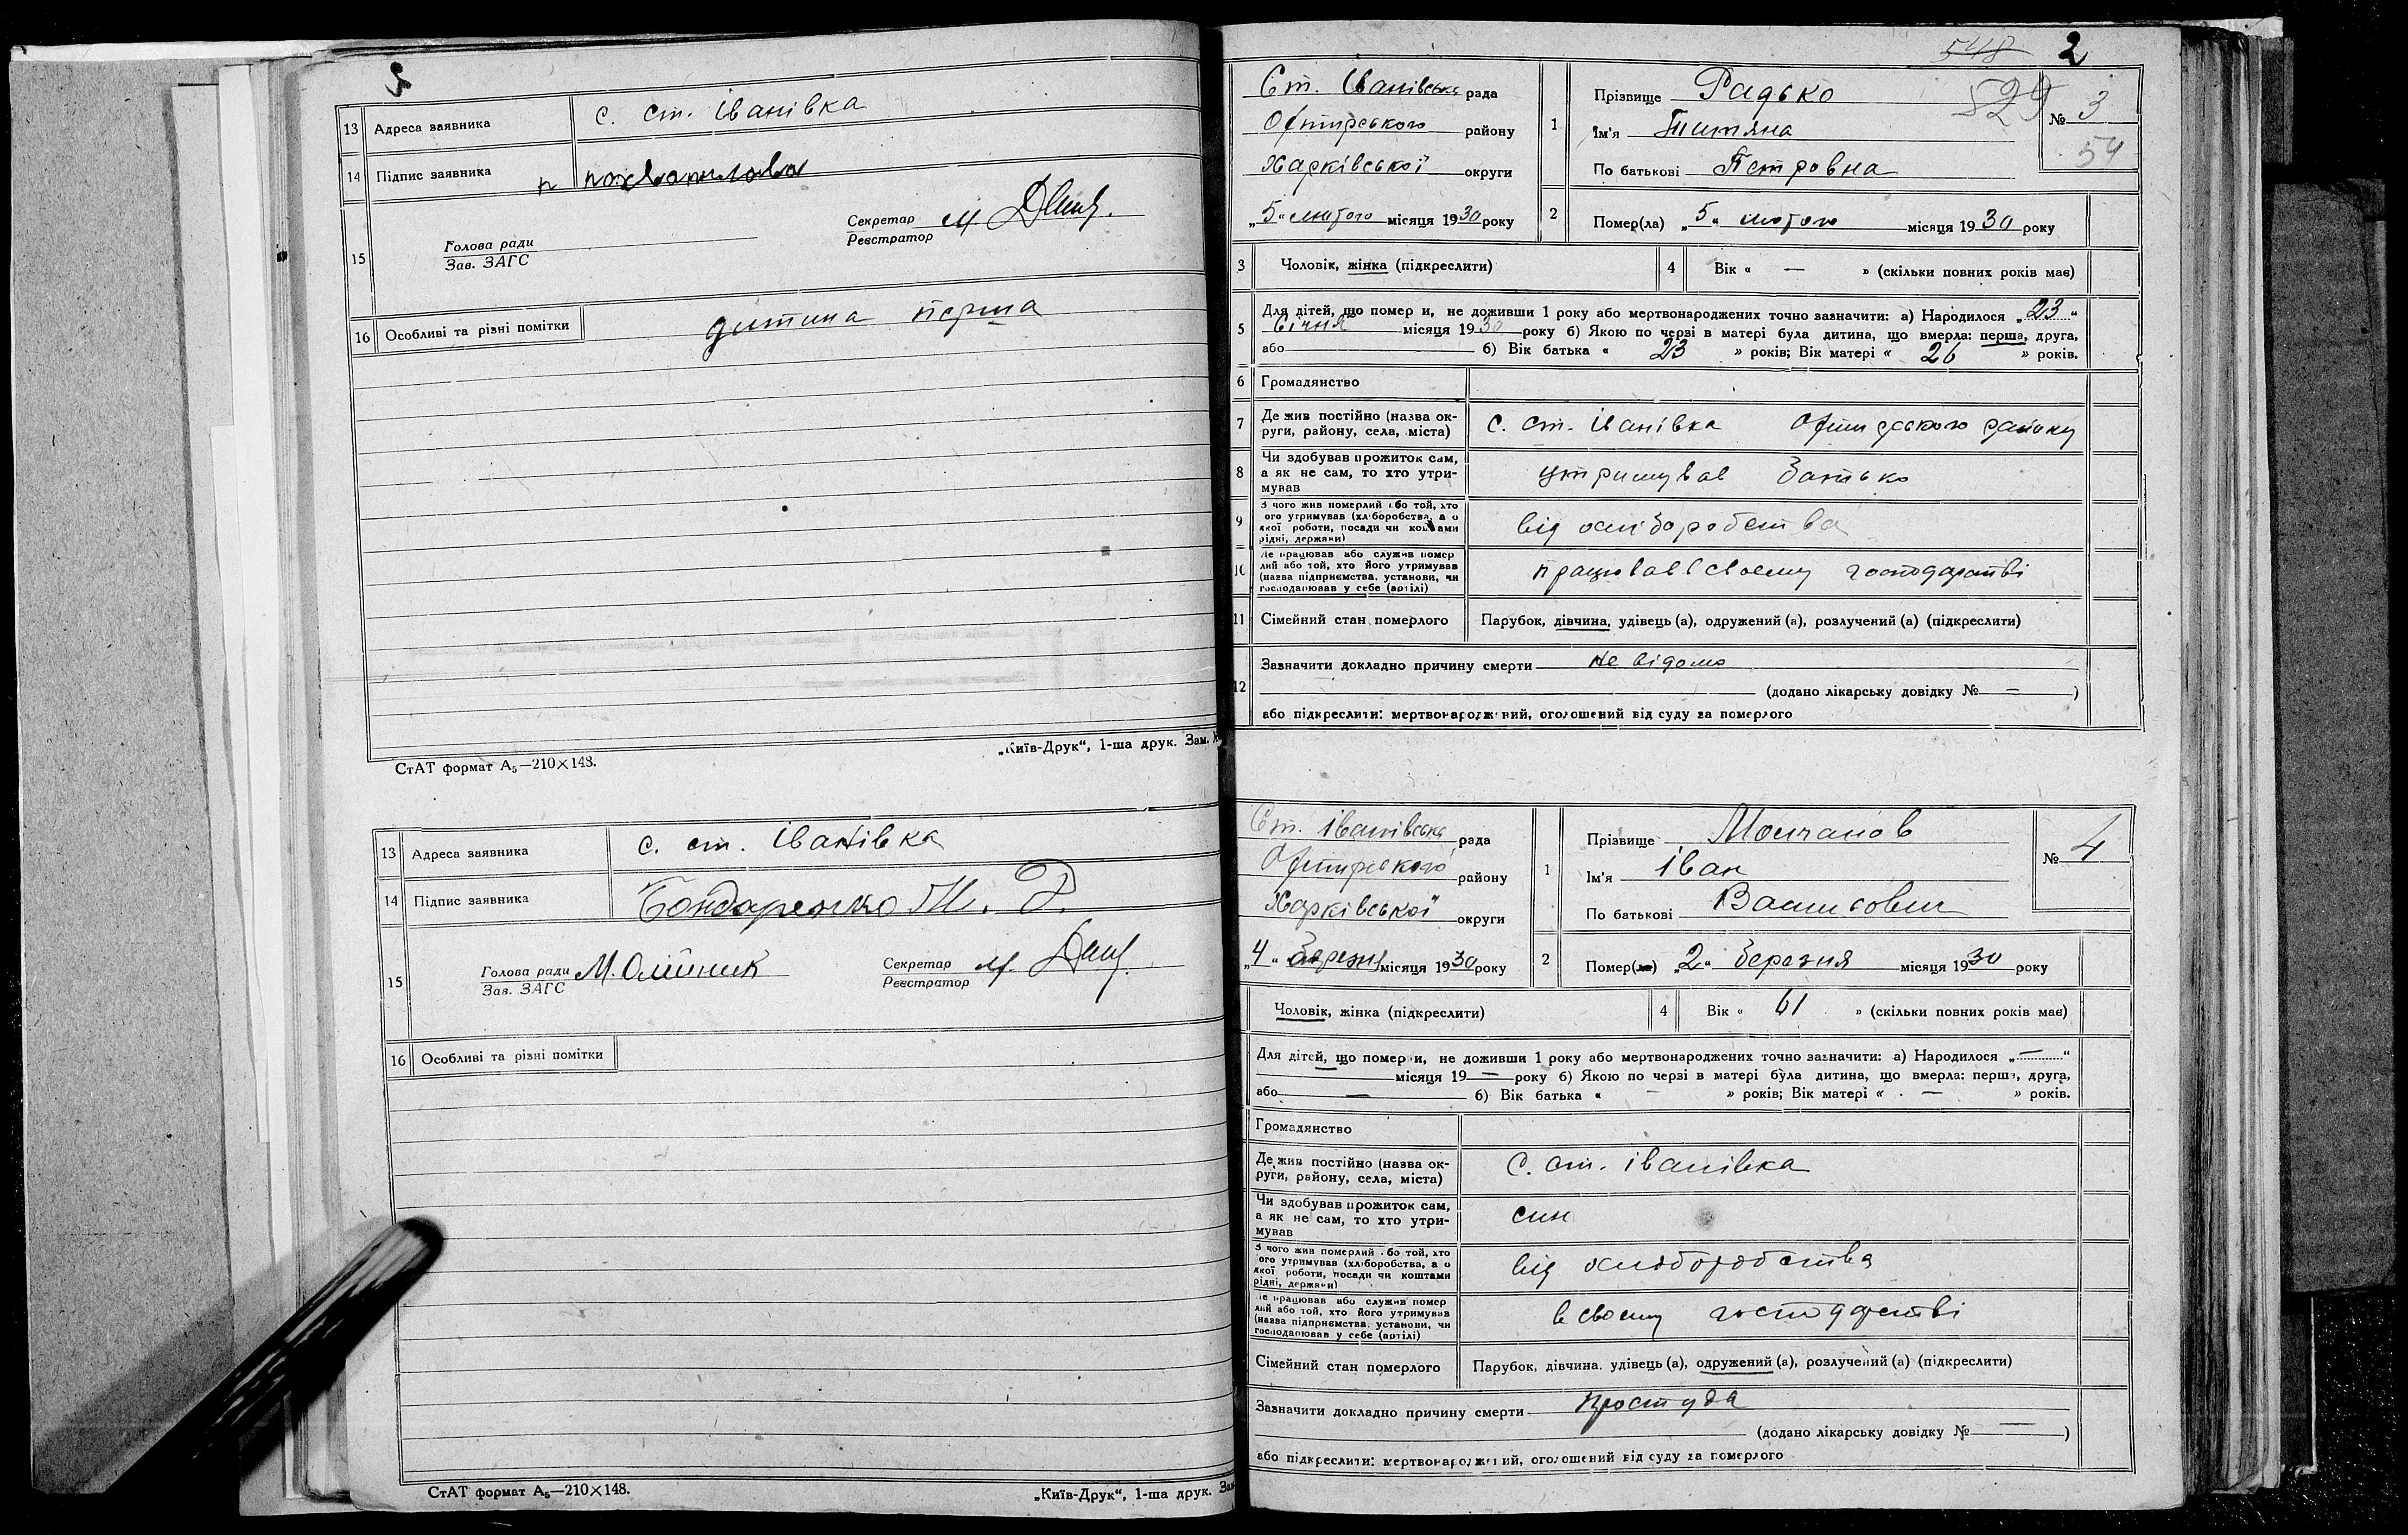 13 Адреса заявника с. ст. Іванівка
14 Підпис заявника
15 Голова ради
Зав. ЗАГС
Секретар
Реєстратор М.
16 Особливі та різні помітки дитина перша
СтАТ формат А5—210×148.
„Київ-Друк“, 1-ша друк. Зам.
13 Адреса заявника с. ст. Іванівка
14 Підпис заявника Бондаренко
15 Голова ради М. Олійник
Зав. ЗАГС
Секретар
Реєстратор М.
16 Особливі та різні помітки
СтАТ формат А5—210×148.
„Київ-Друк“, 1-ша друк.
548 2
529
Ст. Іванівська рада
Охтирського району
Харківської округи
„5“ лютого місяця 1930 року
1 Прізвище Радько
Ім'я Титяна
По батькові Петровна
№ 3
54
2 Помер(ла) „5“ лютого місяця 1930 року
3 Чоловік, жінка (підкреслити)
4 Вік « — » (скільки повних років має)
5 Для дітей, що померли, не доживши 1 року або мертвонароджених точно зазначити: а) Народилося „23“
січня місяця 1930 року б) Якою по черзі в матері була дитина, що вмерла: перша, друга,
або б) Вік батька « 23 » років; Вік матері « 26 » років.
6 Громадянство
7 Де жив постійно (назва ок-
руги, району, села, міста) с. ст. Іванівка Охтирського району
8 Чи здобував прожиток сам,
а як не сам, то хто утри-
мував утримував батько
9 З чого жив померлий або той, хто
його утримував (хліборобства, з
якої роботи, посади чи коштами
рідні, держави) від хліборобства
10 Де працював або служив помер
лий або той, хто його утримував
(назва підприємства, установи, чи
господарював у себе (артілі) працював в своєму господарстві
11 Сімейний стан померлого Парубок, дівчина, удівець (а), одружений (а), розлучений (а) (підкреслити)
12 Зазначити докладно причину смерти не відомо
(додано лікарську довідку № — )
або підкреслити: мертвонароджений, оголошений від суду за померлого
Ст. Іванівська рада
Охтирського району
Харківської округи
„4“ березня місяця 1930 року
1 Прізвище Молчанов
Ім'я Іван
По батькові Василович
№ 4
2 Помер(ла) „2“ березня місяця 1930 року
Чоловік, жінка (підкреслити)
4 Вік « 61 » (скільки повних років має)
Для дітей, що померли, не доживши 1 року або мертвонароджених точно зазначити: а) Народилося „—“
місяця 19 — року б) Якою по черзі в матері була дитина, що вмерла: перша, друга,
або — б) Вік батька « — » років; Вік матері « — » років.
Громадянство
Де жив постійно (назва ок-
руги, району, села, міста) С. ст. Іванівка
Чи здобував прожиток сам,
а як не сам, то хто утри-
мував син
З чого жив померлий або той, хто
його утримував (хліборобства, з
якої роботи, посади чи коштами
рідні, держави) від хліборобства
Де працював або служив помер
лий або той, хто його утримував
(назва підприємства, установи, чи
господарював у себе (артілі) в своєму господарстві
Сімейний стан померлого Парубок, дівчина, удівець (а), одружений (а), розлучений (а) (підкреслити)
Зазначити докладно причину смерти простуда
(додано лікарську довідку № — )
або підкреслити: мертвонароджений, оголошений від суду за померлого